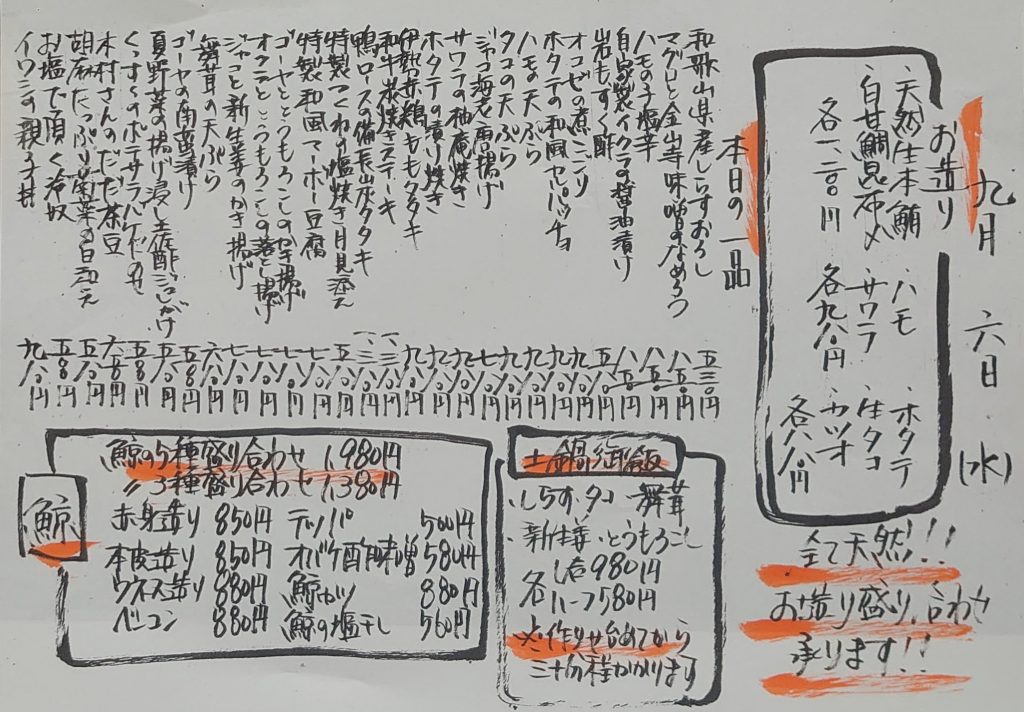 九月 六日 (水)
お造り
・天然生本鮪
・白甘鯛昆布〆
各一、二〇〇円
・ハモ
・サワラ
各九八〇円
・ホタテ
・生タコ
・カツオ
各八八〇円
全て天然!!
お造り盛り合わせ
承ります!!
本日の一品
和歌山県産しらすおろし 五三〇円
ハモの子塩辛
マグロと金山寺味噌のなめろう 八五〇円
自家製イクラの醤油漬け 八五〇円
岩もずく酢
オコゼの煮こごり
ホタテの和風カルパッチョ 九八〇円
ハモの天ぷら 九八〇円
タコの天ぷら
ジャコ海老唐揚げ
サワラの柚庵焼き
ホタテの漬け焼き
伊勢赤鶏ももタタキ 九八〇円
和牛炭焼きステーキ
鴨ロースの備長炭タタキ
特製つくねの塩焼き月見添え
特製和風マーボー豆腐
ゴーヤととうもろこしのかき揚げ
オクラととうもろこしの落とし揚げ
ジャコと新生姜のかき揚げ
舞茸の天ぷら
ゴーヤの南蛮漬け
夏野菜の揚げ浸し土佐酢ジュレがけ
くっすーのポテサラバケットのせ
木村さんのだだ茶豆
胡麻たっぷり菊菜の白和え
お塩で頂く冷奴 五八〇円
イワシの親子丼 九八〇円
土鍋御飯
・しらす・タコ・舞茸
・新生姜・とうもろこし
各一合980円
ハーフ580円
※作りせ始めてから
三十分程かかります
鯨
鯨の5種盛り合わせ 1,980円
〃3種盛り合わせ 1,380円
赤身造り 850円 テッパ 500円
本皮造り 850円 オバケ酢味噌 580円
ウネス造り 880円 鯨カツ 880円
ベーコン 880円 鯨の塩干し 560円